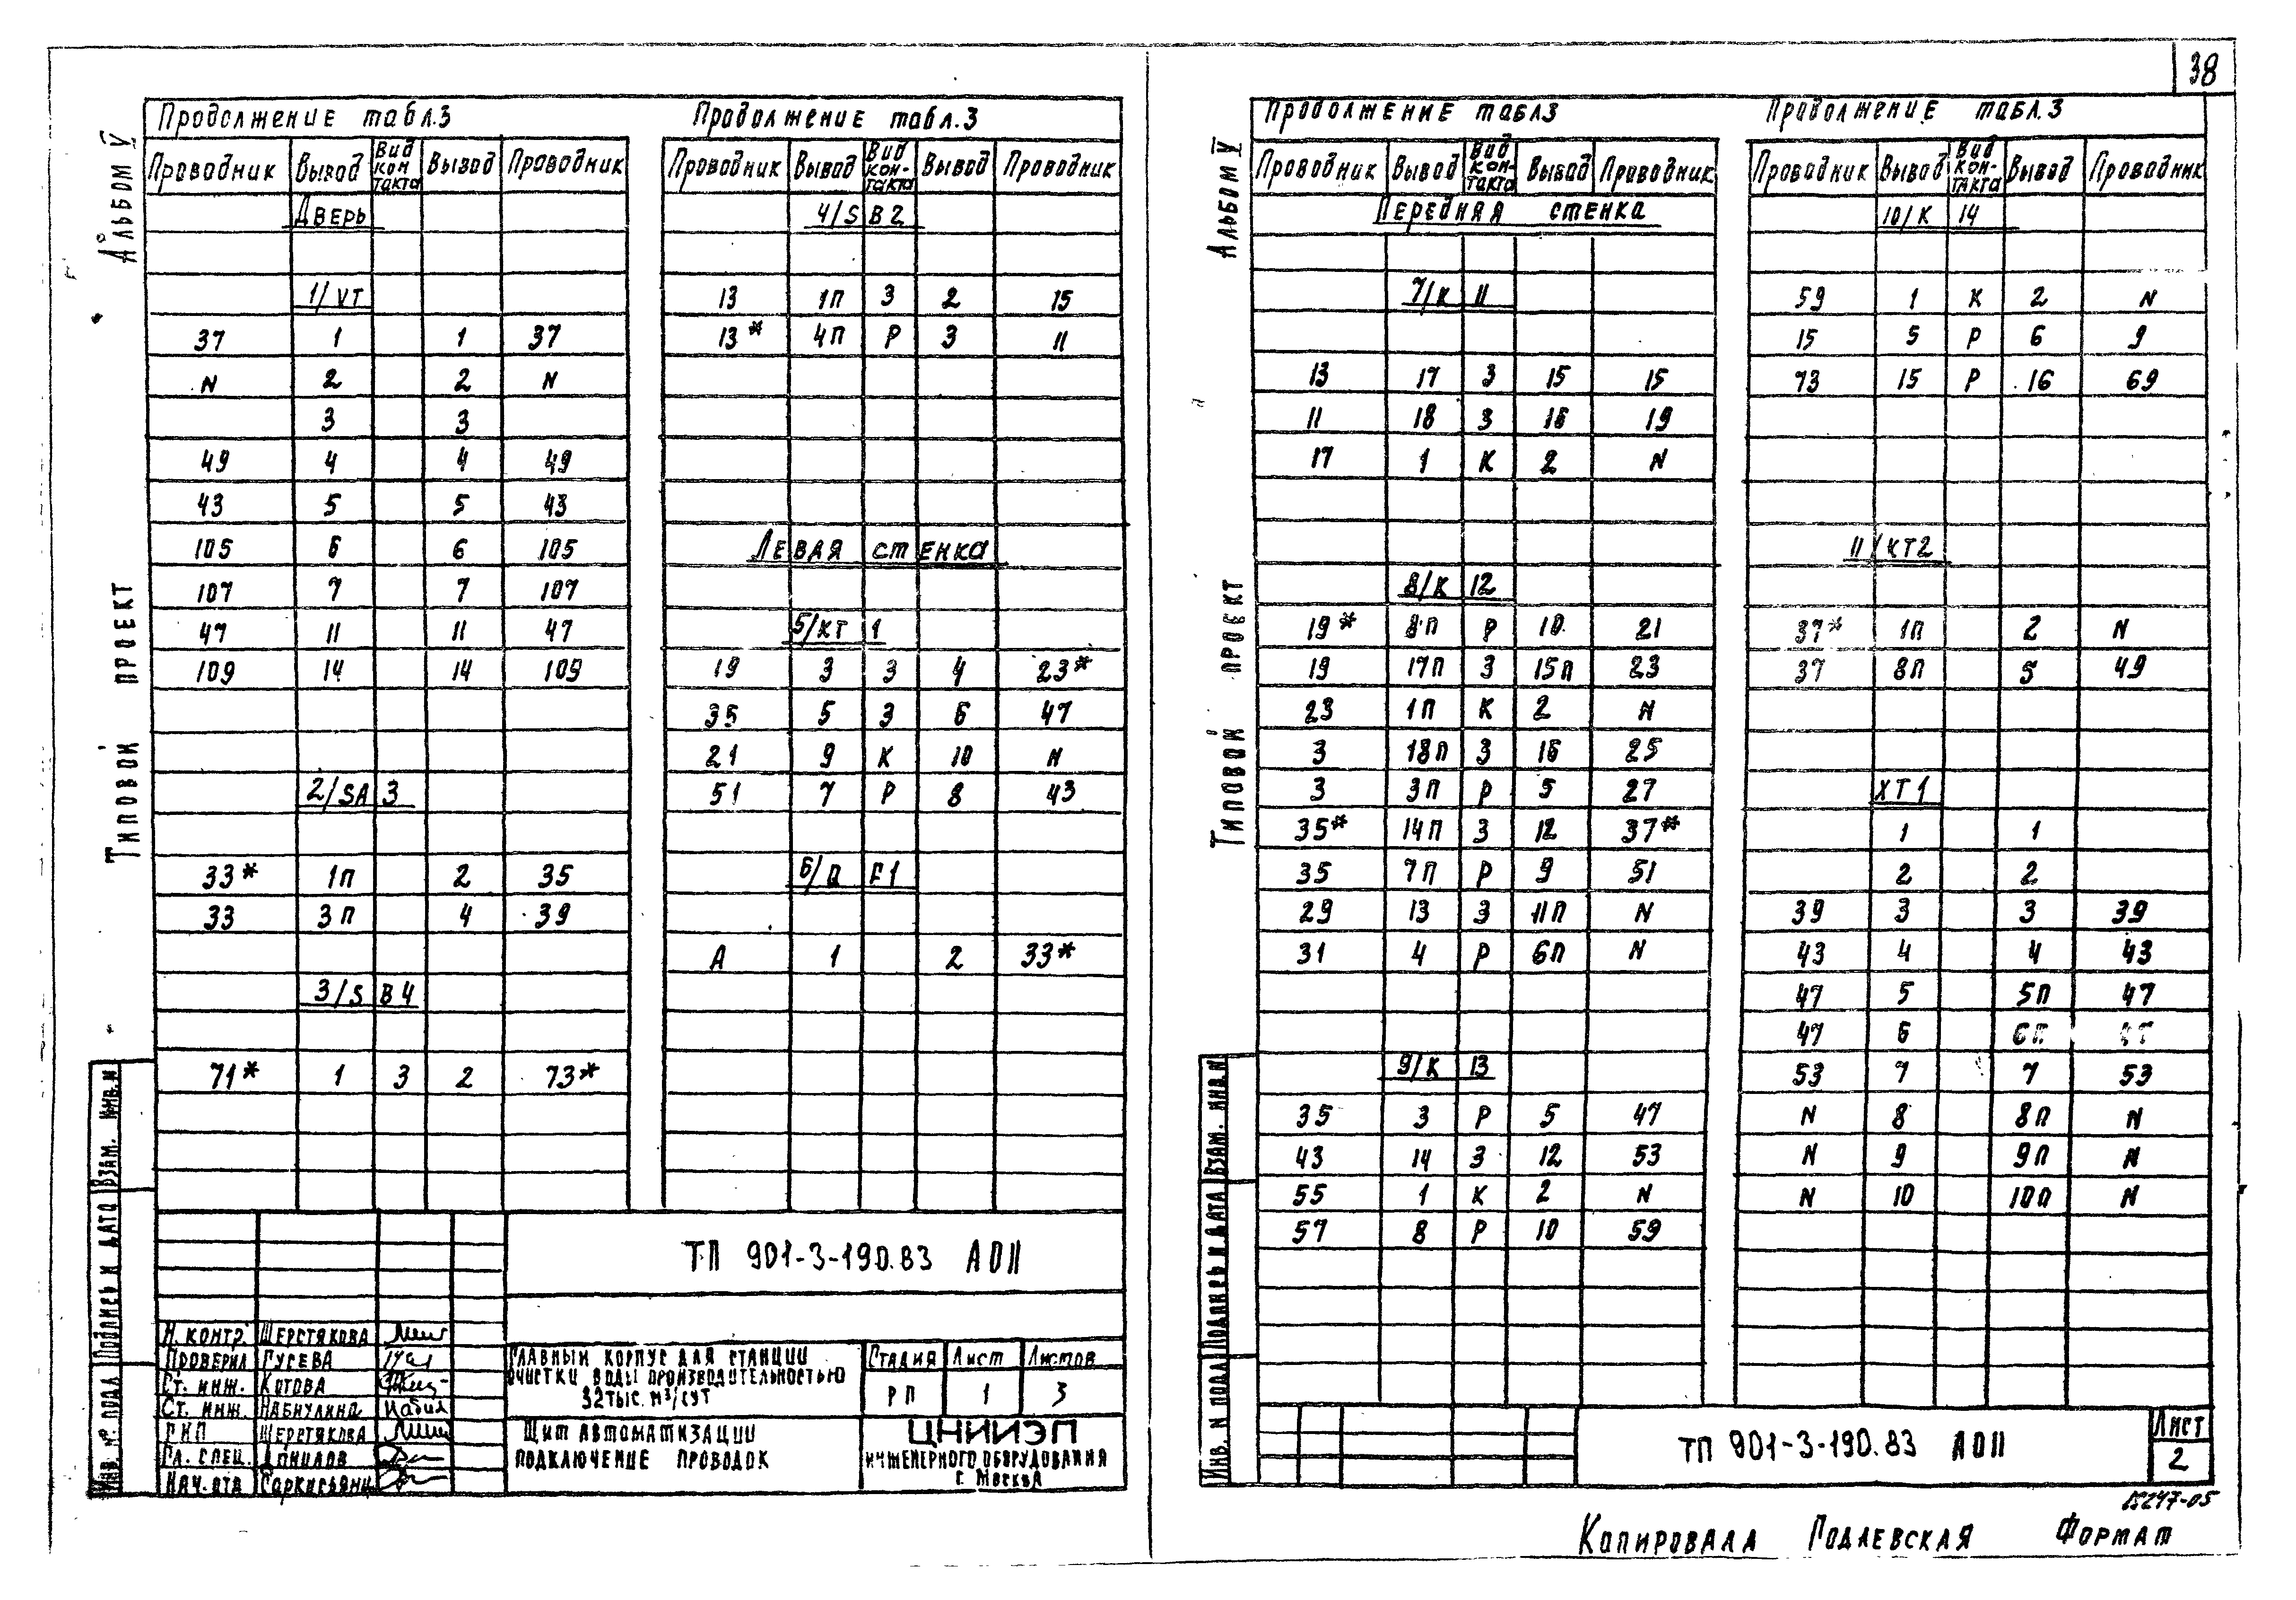 38
Альбом V
Типовой проект
Продолжение табл.3
Проводник Вывод Вид кон такта Вывод Проводник
Дверь
1/VT
37 1 1 37
N 2 2 N
3 3
49 4 4 49
43 5 5 43
105 6 6 105
107 7 7 107
47 11 11 47
109 14 14 109
2/SA 3
33* 1П 2 35
33 3П 4 39
3/S В4
71* 1 З 2 73*
Продолжение табл.3
Проводник Вывод Вид кон-такта Вывод Проводник
4/S В2
13 1П З 2 15
13* 4П Р 3 11
Левая стенка
5/КТ 1
19 3 З 4 23*
35 5 З 6 47
21 9 К 10 N
51 7 Р 8 43
6/Q F1
А 1 2 33*
Взам. инв. N
Подпись и дата
Инв. № подл
ТП 901-3-190.83 АОП
Н. контр. Шерстякова
Проверил Гусева
Ст. инж. Котова
Ст. инж. Набиулина
Шерстякова
Гл. спец. Данилов
Нач. отд Саркисьянц
Главный корпус для станции
очистки воды производительностью
32тыс. м³/сут
Стадия Лист Листов
РП 1 3
Щит автоматизации
подключение проводок
ЦНИИЭП
инженерного оборудования
г. Москва
Альбом V
Типовой проект
Продолжение табл3
Проводник Вывод Вид кон-такта Вывод Проводник
Передняя стенка
7/К 11
13 17 З 15 15
11 18 З 16 19
17 1 К 2 N
8/К 12
19* 8П Р 10 21
19 17П З 15П 23
23 1П К 2 N
3 18П З 16 25
3 3П Р 5 27
35* 14П З 12 37*
35 7П Р 9 51
29 13 З 11П N
31 4 Р 6П N
9/К 13
35 3 Р 5 47
43 14 З 12 53
55 1 К 2 N
57 8 Р 10 59
Продолжение табл.3
Проводник Вывод Вид кон-такта Вывод Проводник
10/К 14
59 1 К 2 N
15 5 Р 6 9
73 15 Р 16 69
11/КТ2
37* 1П 2 N
37 8П 5 49
ХТ1
1 1
2 2
39 3 3 39
43 4 4 43
47 5 5П 47
47 6 6П
53 7 7 53
N 8 8П N
N 9 9П N
N 10 10П N
Взам. инв N
Подпись и дата
Инв. N подл
ТП 901-3-190.83 АОП
Лист
2
18247-05
Копировала Подлевская Формат